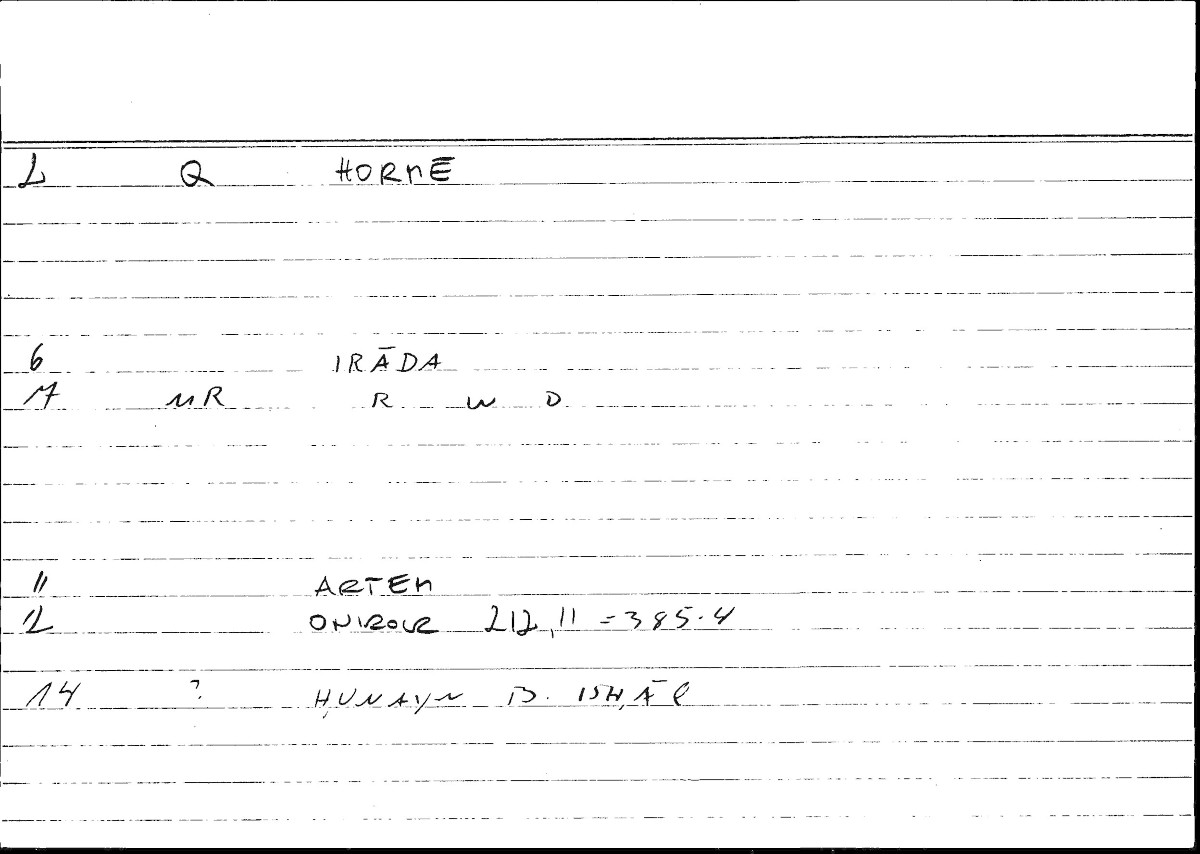 1 Q HORMĒ
6 IRĀDA
7 NR R W D
11 ARTEM
12 ONIROCR 212,11 = 385.4
14 ? ḤUNAYN B. ISḤĀQ